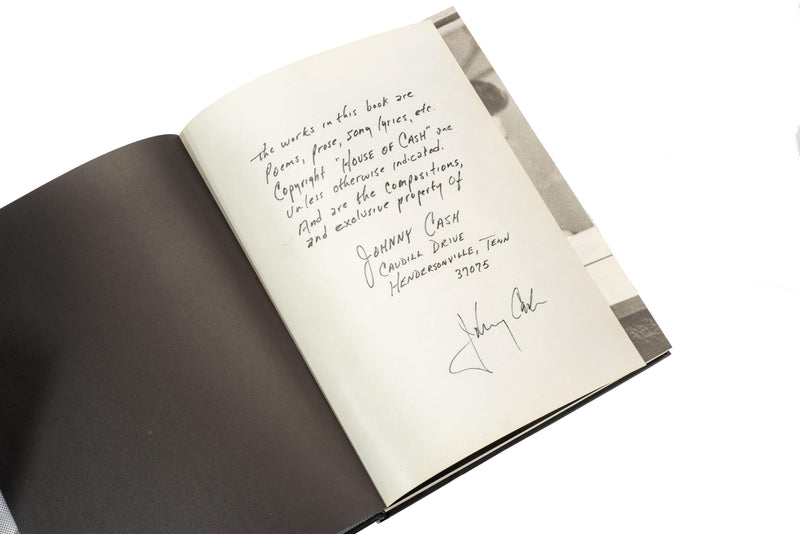 The works in this book are
Poems, prose, song lyrics, etc.
Copyright "HOUSE OF CASH" are
unless otherwise indicated.
And are the compositions,
and exclusive property Of
JOHNNY CASH
CAUDILL DRIVE
HENDERSONVILLE, TENN
37075
Johnny Cash